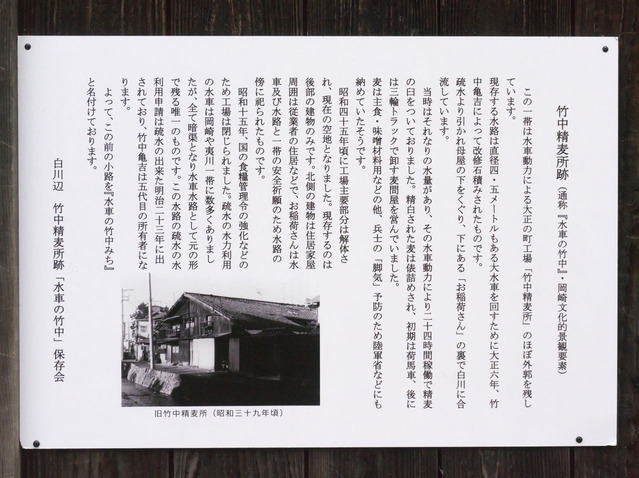 竹中精麦所跡（通称『水車の竹中』・岡崎文化的景観要素）
この一帯は水車動力による大正の町工場「竹中精麦所」のほぼ外郭を残し
ています。
現存する水路は直径四・五メートルもある大水車を回すために大正六年、竹
中亀吉によって改修石積みされたものです。
疏水より引かれ母屋の下をくぐり、下にある「お稲荷さん」の裏で白川に合
流しています。
当時はそれなりの水量があり、その水車動力により二十四時間稼働で精麦
の臼をついておりました。精白された麦は俵詰めされ、初期は荷馬車、後に
は三輪トラックで卸す麦問屋を営んでいました。
麦は主食・味噌材料用などの他、兵士の「脚気」予防のため陸軍省などにも
納めていたそうです。
昭和四十五年頃に工場主要部分は解体さ
れ、現在の空地となりました。現存するのは
後部の建物のみです。北側の建物は住居家屋
周囲は従業者の住居などで、お稲荷さんは水
車及び水路と一帯の安全祈願のため水路の
傍に祀られたものです。
昭和十五年、国の食糧管理令の強化などの
ため工場は閉じられました。疏水の水力利用
の水車は岡崎や夷川一帯に数多くありまし
たが、全て暗渠となり水車水路として元の形
で残る唯一のものです。この水路の疏水の水
利用申請は疏水の出来た明治二十三年に出
されており、竹中亀吉は五代目の所有者にな
ります。
よって、この前の小路を『水車の竹中みち』
と名付けております。
白川辺　竹中精麦所跡「水車の竹中」保存会
旧竹中精麦所（昭和三十九年頃）